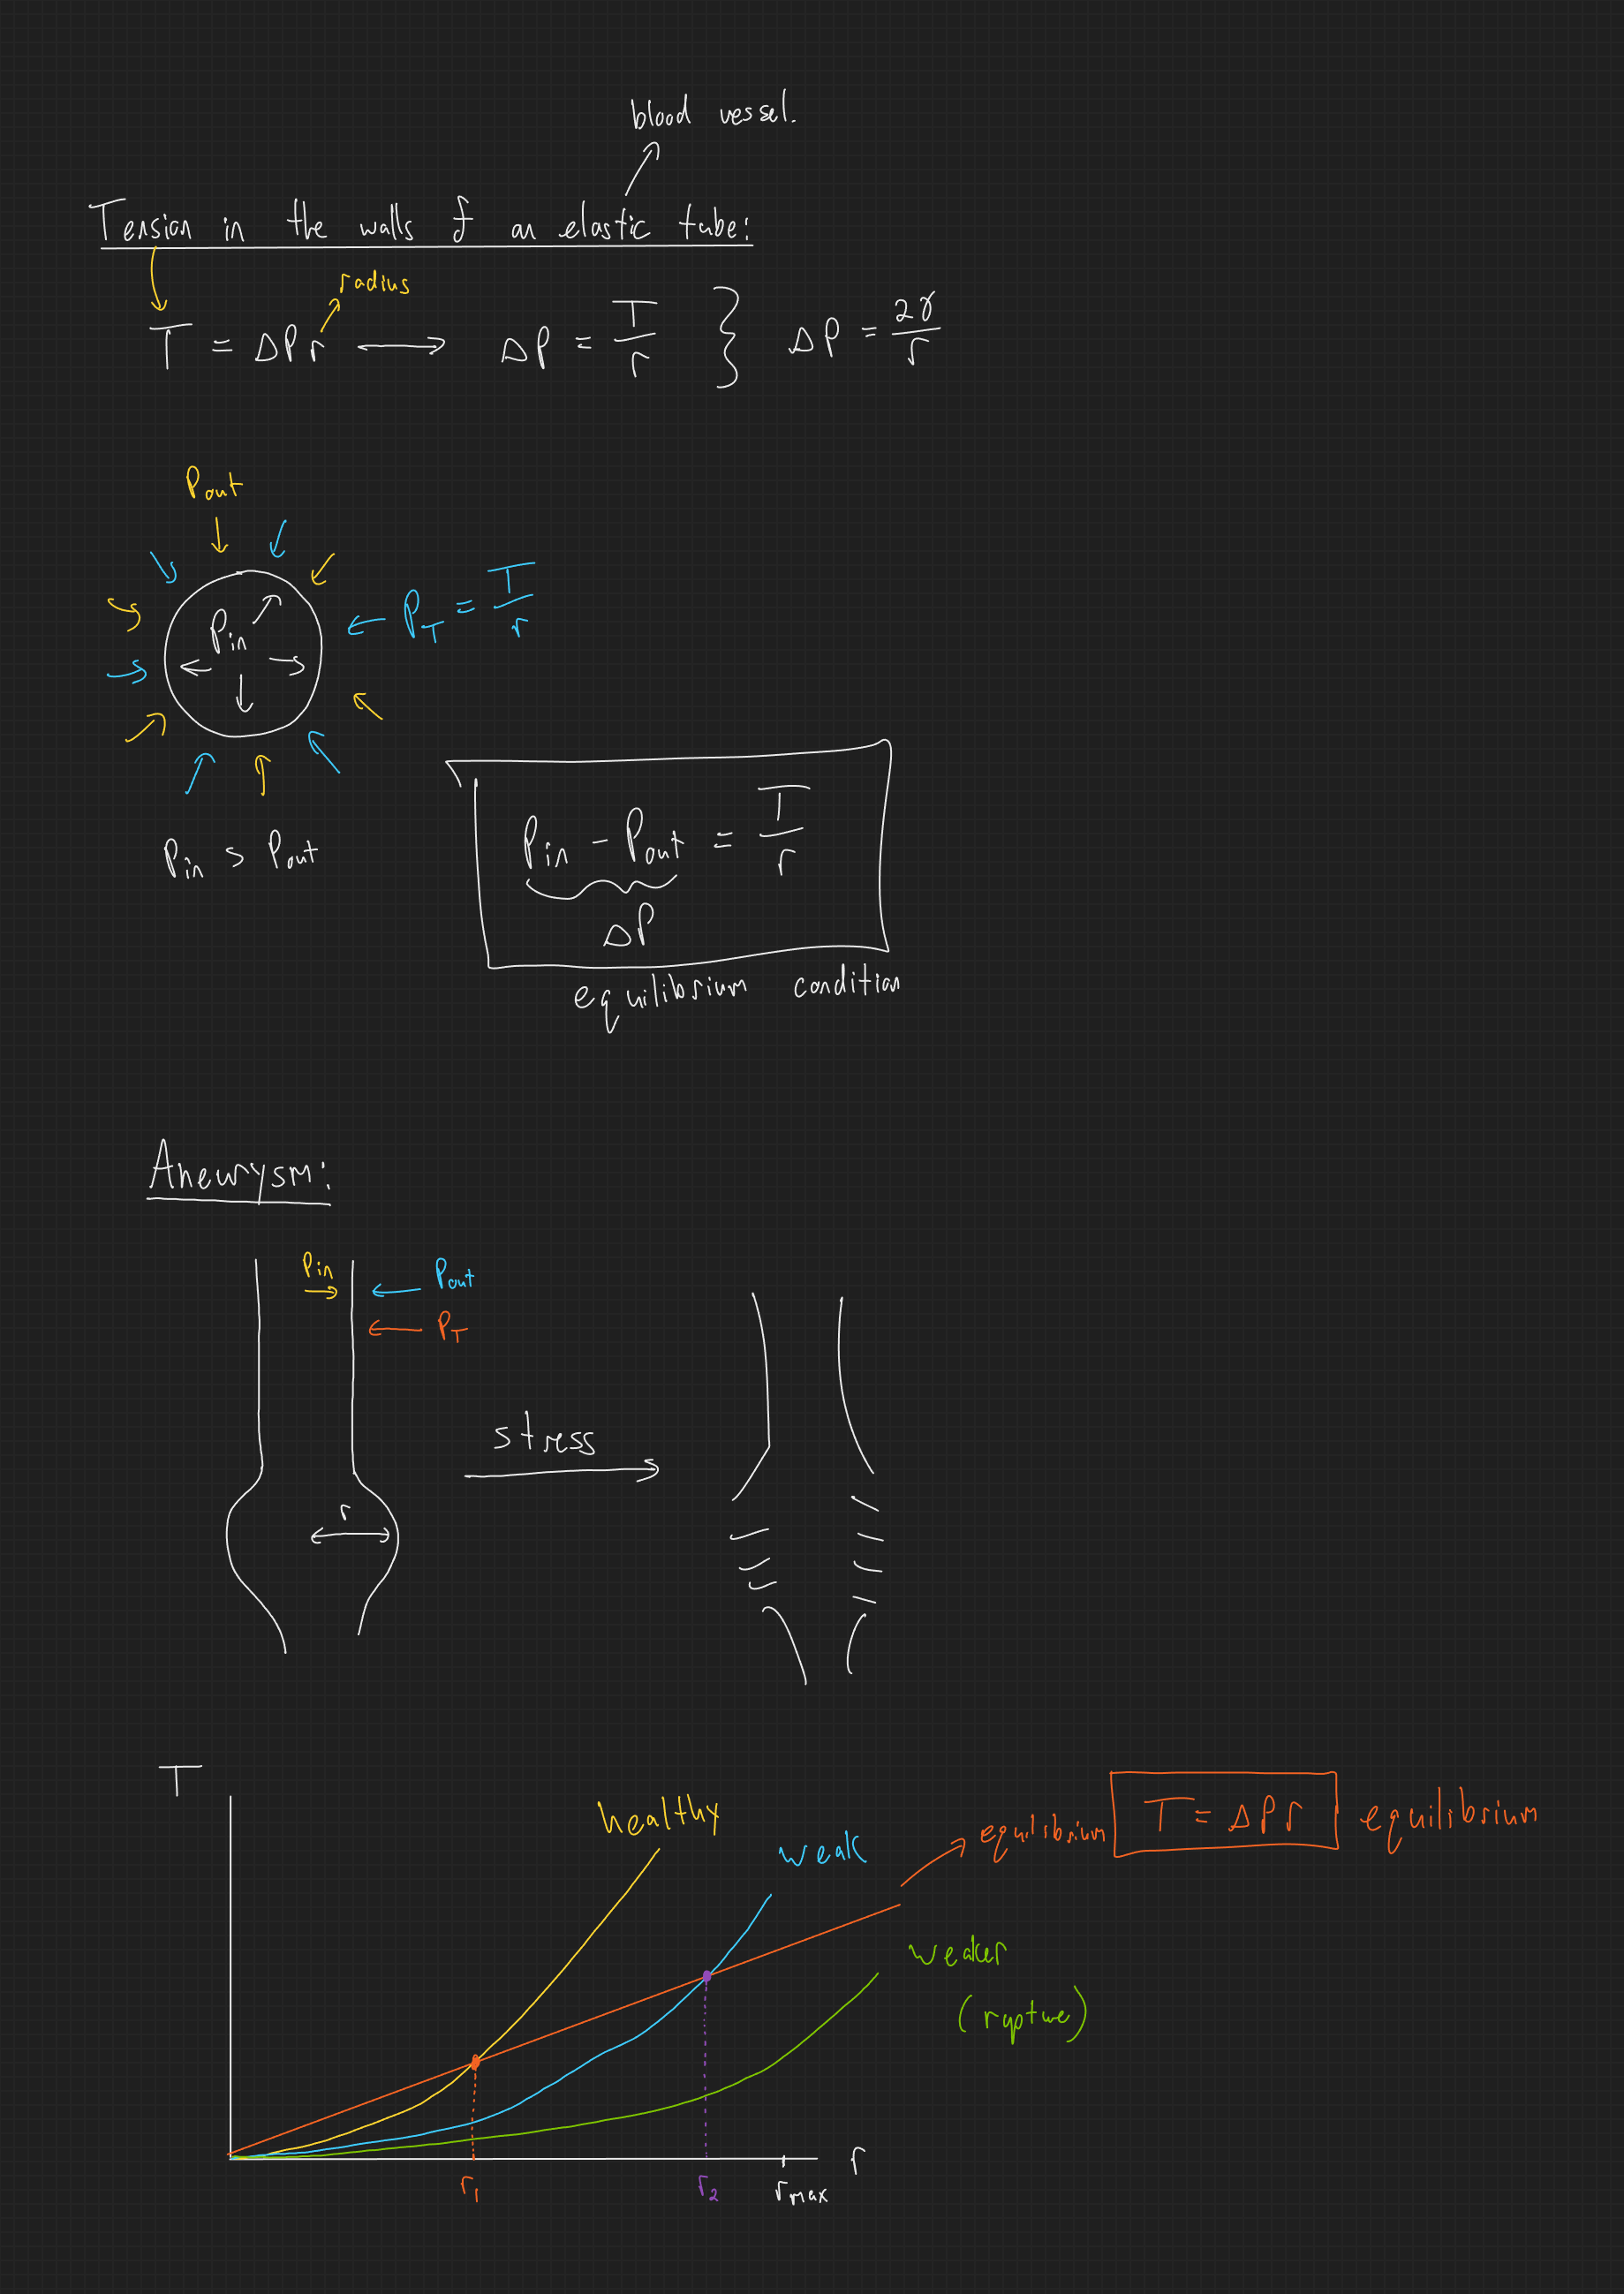 blood vessel.
Tension in the walls of an elastic tube:
radius
T = ΔP r ⟷ ΔP = T/r } ΔP = 2γ/r
Pout
Pin
← P_T = T/r
Pin > Pout
Pin - Pout = T/r
ΔP
equilibrium condition
Aneurysm:
Pin
Pout
P_T
stress
r
T
healthy
weak
equilibrium
T = ΔP r
equilibrium
weaker
(rupture)
r
r₁
r₂
r max